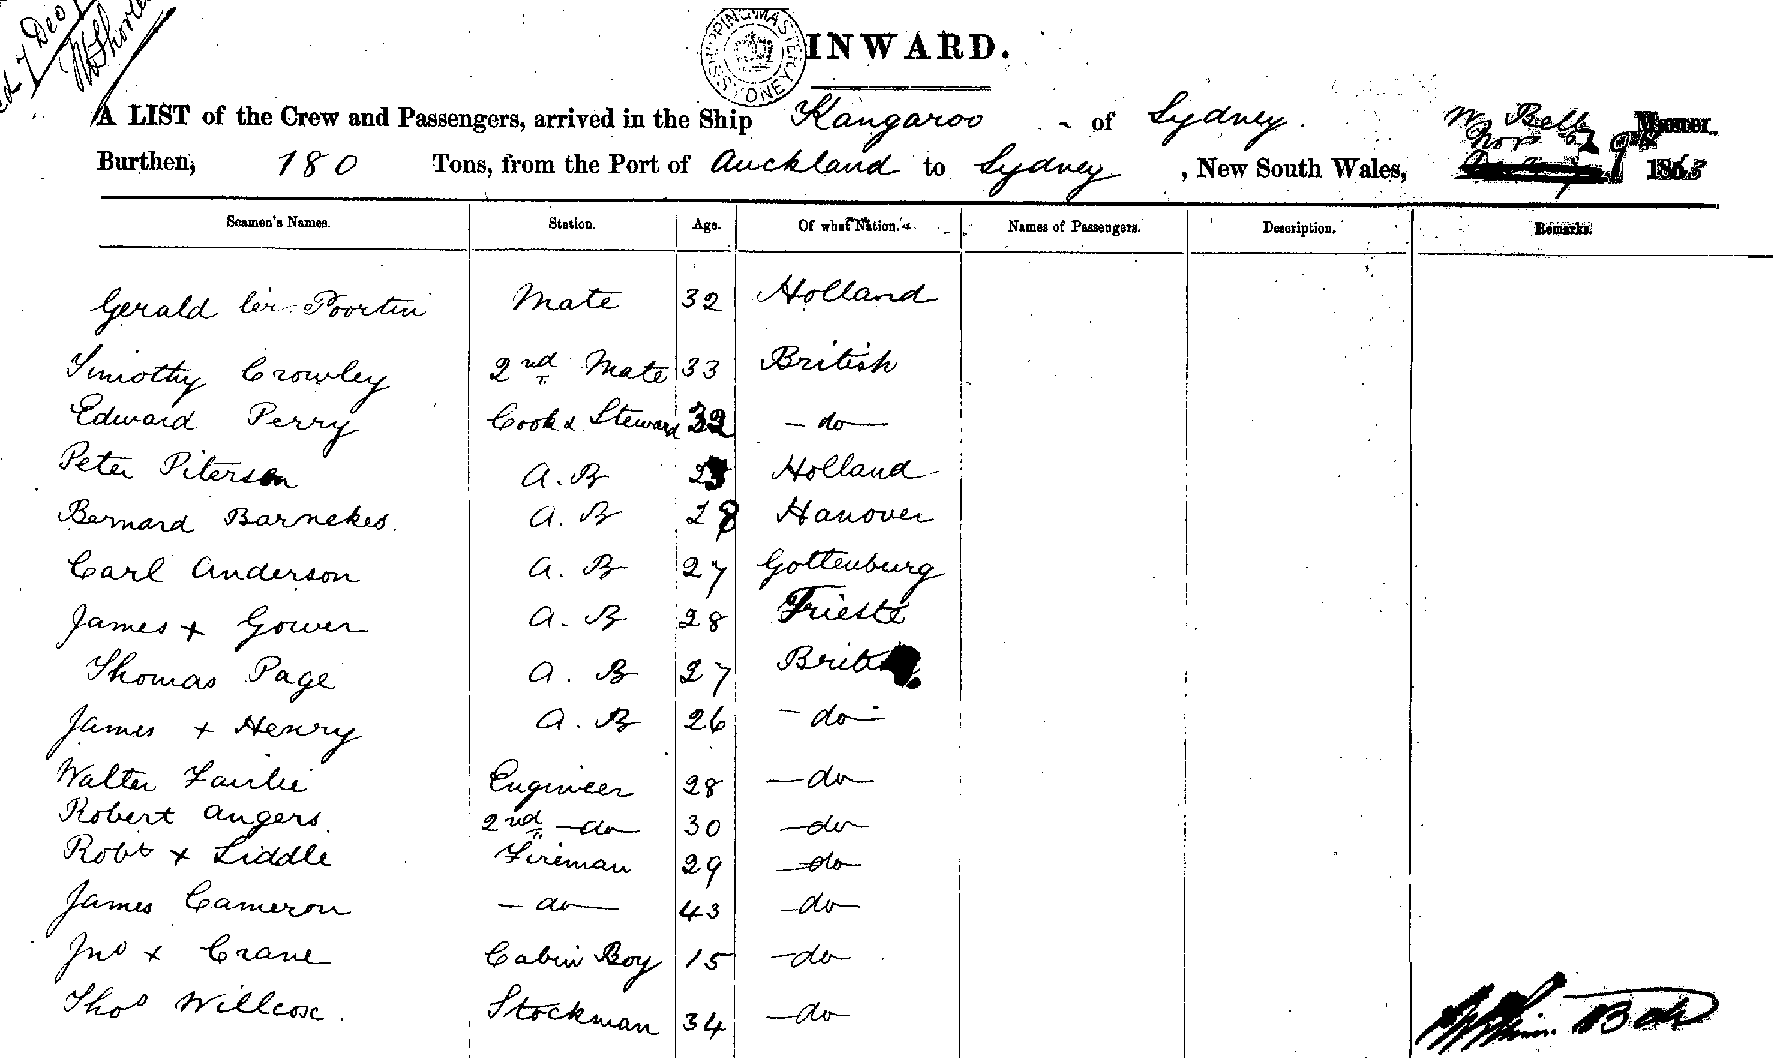 7 Dec
SHIPPING MASTER'S SYDNEY
INWARD.
A LIST of the Crew and Passengers, arrived in the Ship Kangaroo of Sydney. W. Bell Master.
Burthen, 180 Tons, from the Port of Auckland to Sydney, New South Wales, 1863
Seamen's Names. Station. Age. Of what Nation. Names of Passengers. Description. Remarks.
Gerald Poortin Mate 32 Holland
Timothy Crowley 2nd Mate 33 British
Edward Perry Cook & Steward 32 - do -
Peter Piterson A.B Holland
Bernard Barnekes. A.B 28 Hanover
Carl Anderson A.B 27 Gottenburg
James + Gower A.B 28 Trieste
Thomas Page A.B 27
James + Henry A.B 26 - do -
Walter Fairlie Engineer 28 - do -
Robert Angers. 2nd - do 30 - do -
Robt + Liddle Fireman 29 - do -
James Cameron - do - 43 - do -
Jno + Crane Cabin Boy 15 - do -
Thos Willcox. Stockman 34 - do -
William Bell